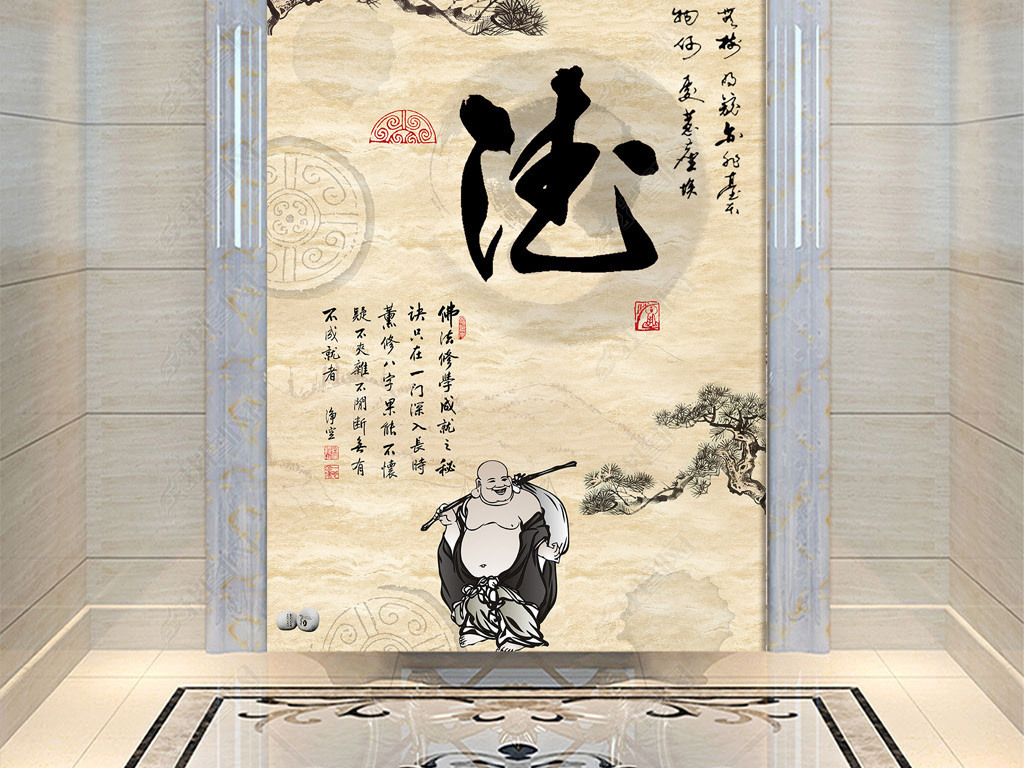 無樹 明鏡亦非臺 本
物 何處惹塵埃
德
佛法修學成就之秘
訣只在一門深入長時
薰修八字果能不懷
疑不夾雜不間斷無有
不成就者 淨空